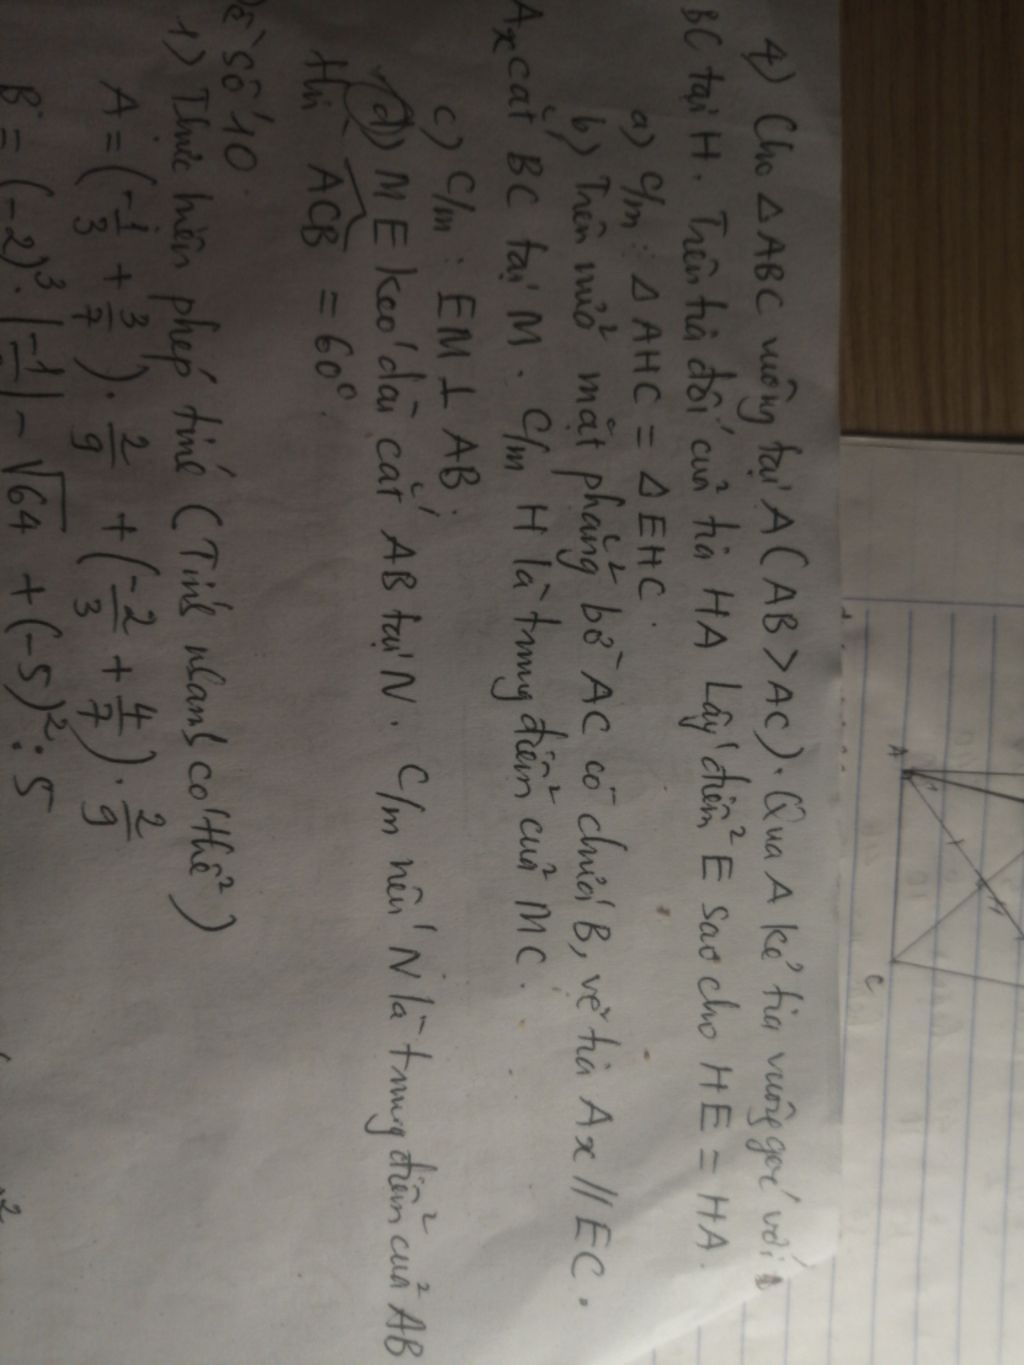 4) Cho △ ABC vuông tại A ( AB > AC ). Qua A kẻ tia vuông góc với
BC tại H. Trên tia đối của tia HA Lấy điểm E sao cho HE = HA.
a) C/m : △ AHC = △ EHC.
b) Trên nửa mặt phẳng bờ AC có chứa B, vẽ tia Ax // EC.
Ax cắt BC tại M. C/m H là trung điểm của MC.
c) C/m : EM ⊥ AB.
d) ME kéo dài cắt AB tại N. C/m nếu N là trung điểm của AB
thì ACB = 60°.
Đề số 10.
1) Thực hiện phép tính ( Tính nhanh có thể )
A = ( -1/3 + 3/7 ) . 2/9 + ( -2/3 + 4/7 ) . 2/9
B = (-2)³ . | -1/ | - √64 + (-5)² : 5
A
H
C